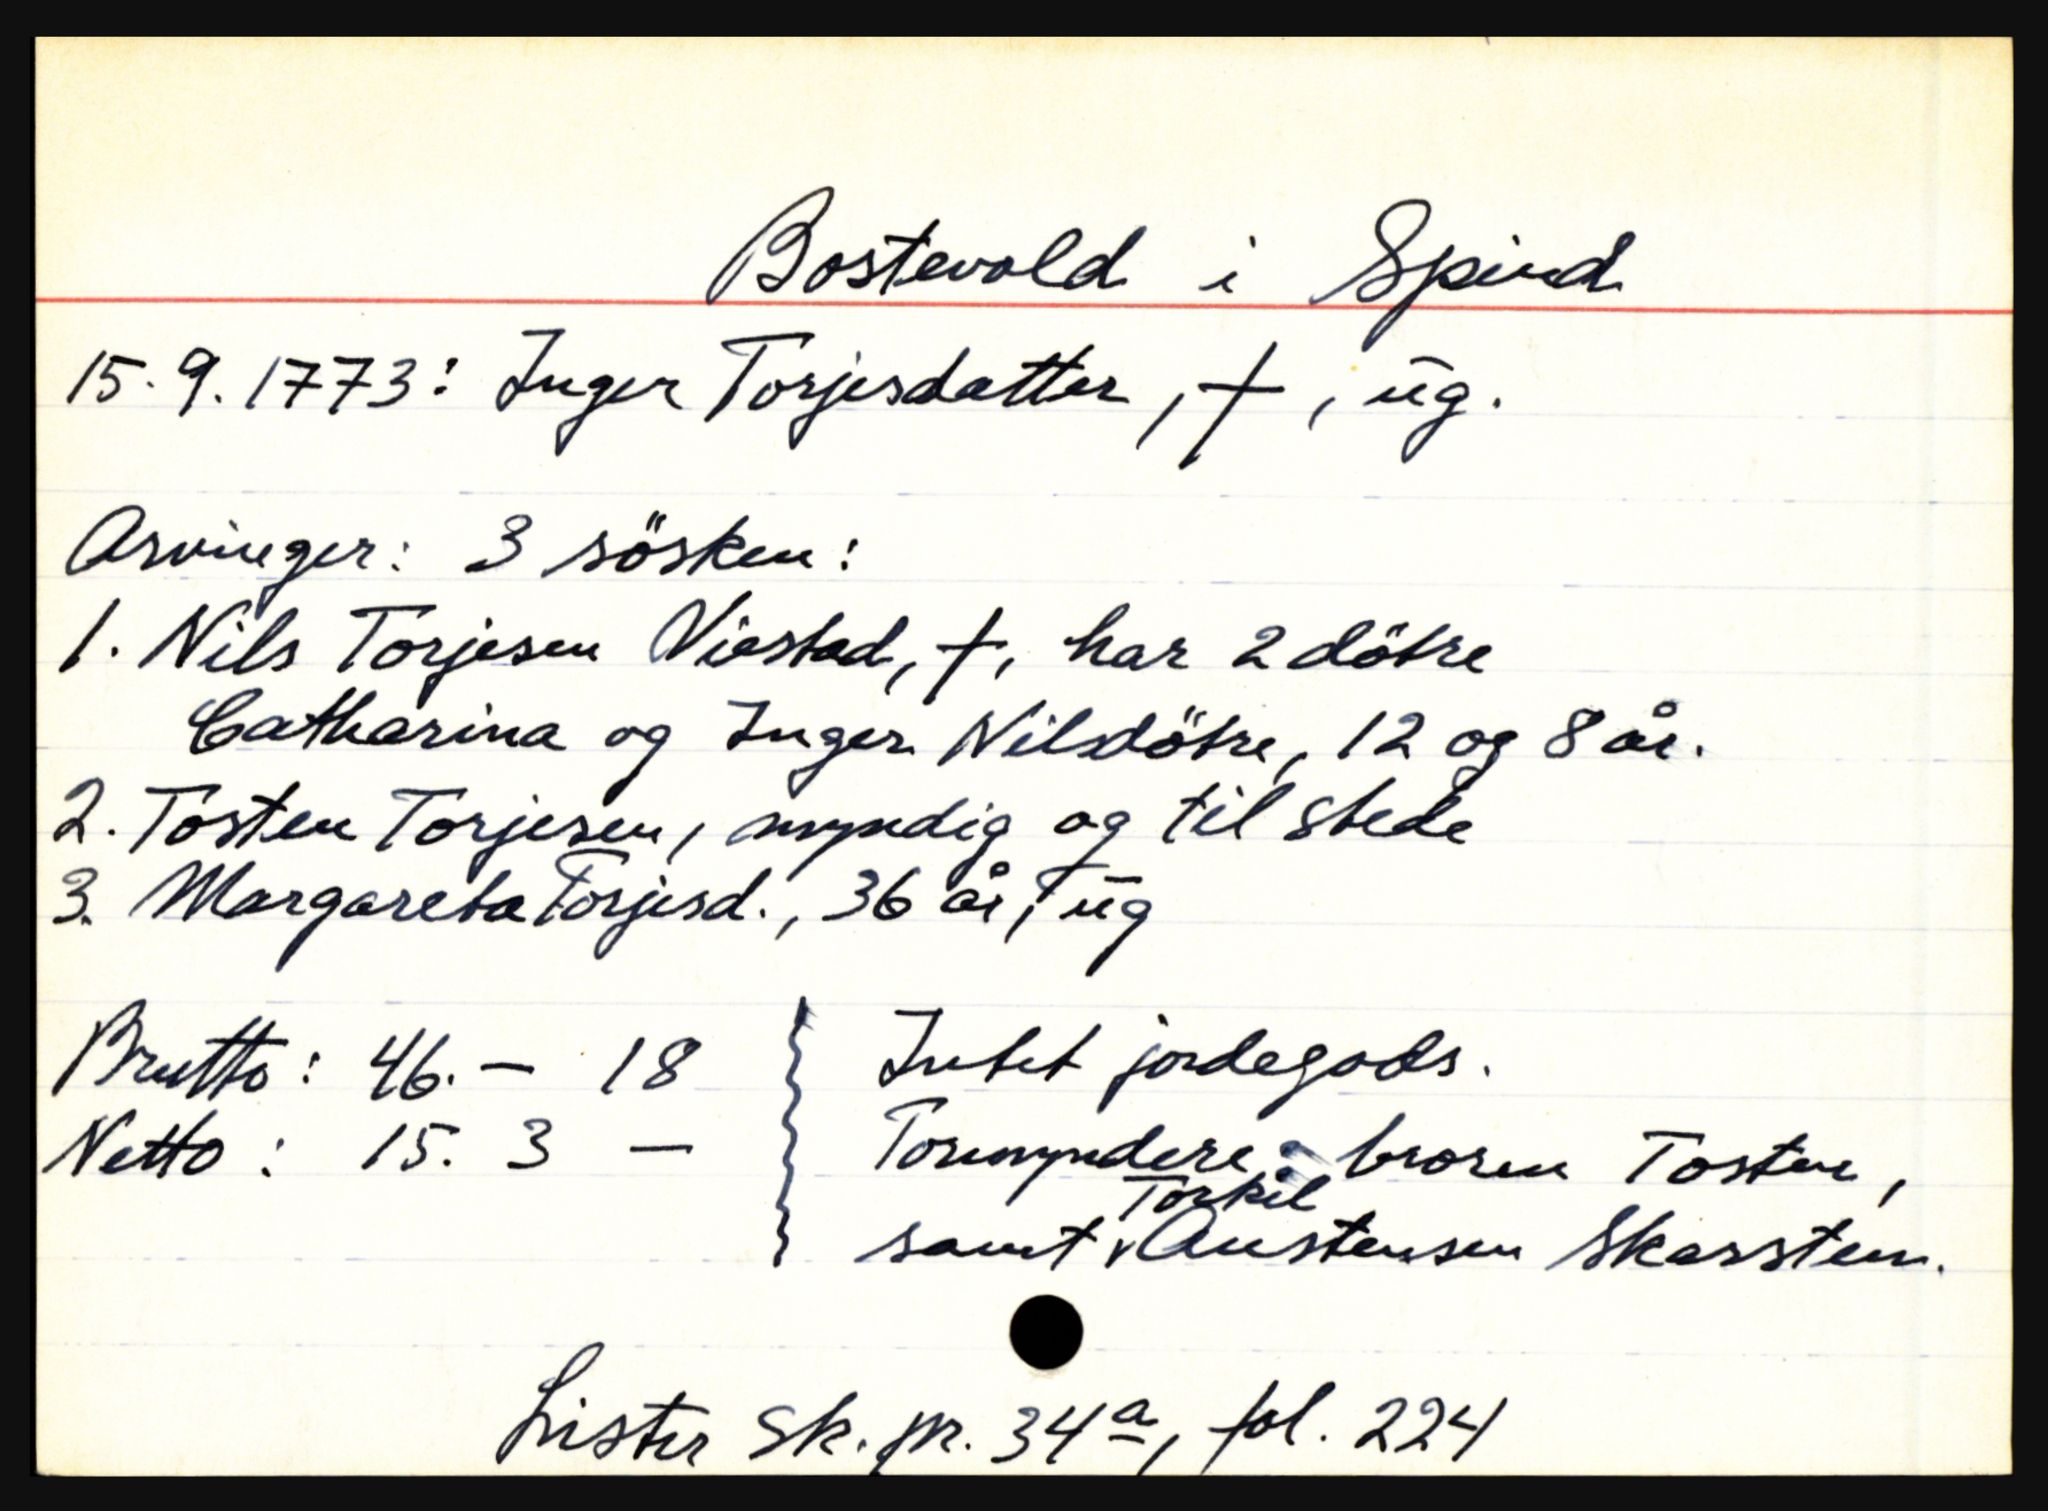 Bostevold i Spind
15.9.1773: Inger Torjesdatter, †, ug.
Arvinger: 3 sösken:
1. Nils Torjesen Viestad, †, har 2 dötre
Catharina og Inger Nilsdötre, 12 og 8 år.
2. Tosten Torjesen, myndig og til stede
3. Margareta Torjesd., 36 år, ug
Brutto: 46. – 18
Netto: 15. 3 –
Intet jordegods.
Formyndere: broren Tosten,
samt Torkil Austensen Skarstein.
Lister Sk. pr. 34a, fol. 224